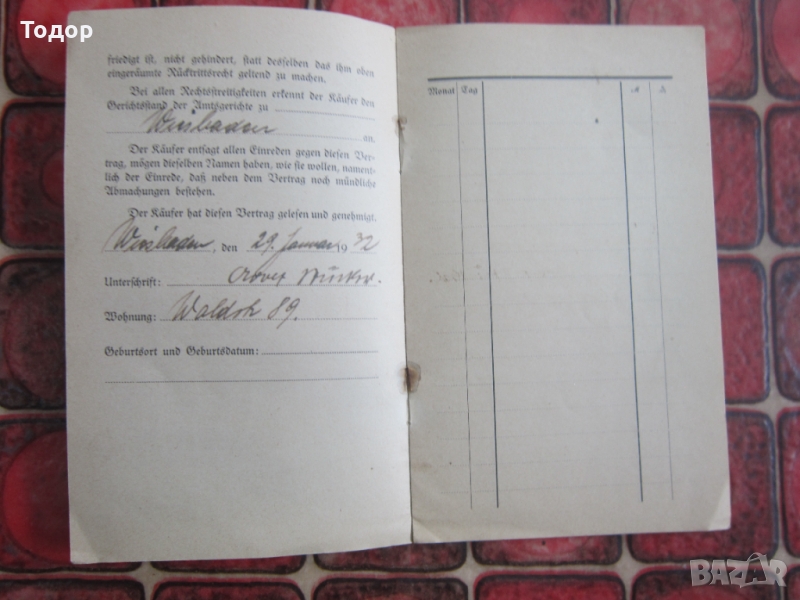 Todor
friedigt ist, nicht gehindert, statt desselben das ihm oben
eingeräumte Rücktrittsrecht geltend zu machen.
Bei allen Rechtsstreitigkeiten erkennt der Käufer den
Gerichtsstand der Amtsgerichte zu
Wiesbaden an.
Der Käufer entsagt allen Einreden gegen diesen Ver-
trag, mögen dieselben Namen haben, wie sie wollen, nament-
lich der Einrede, daß neben dem Vertrag noch mündliche
Abmachungen bestehen.
Der Käufer hat diesen Vertrag gelesen und genehmigt.
Wiesbaden, den 29. Januar 1932
Unterschrift:
Wohnung: Waldstr 89.
Geburtsort und Geburtsdatum:
Monat Tag
BAZAR.bg